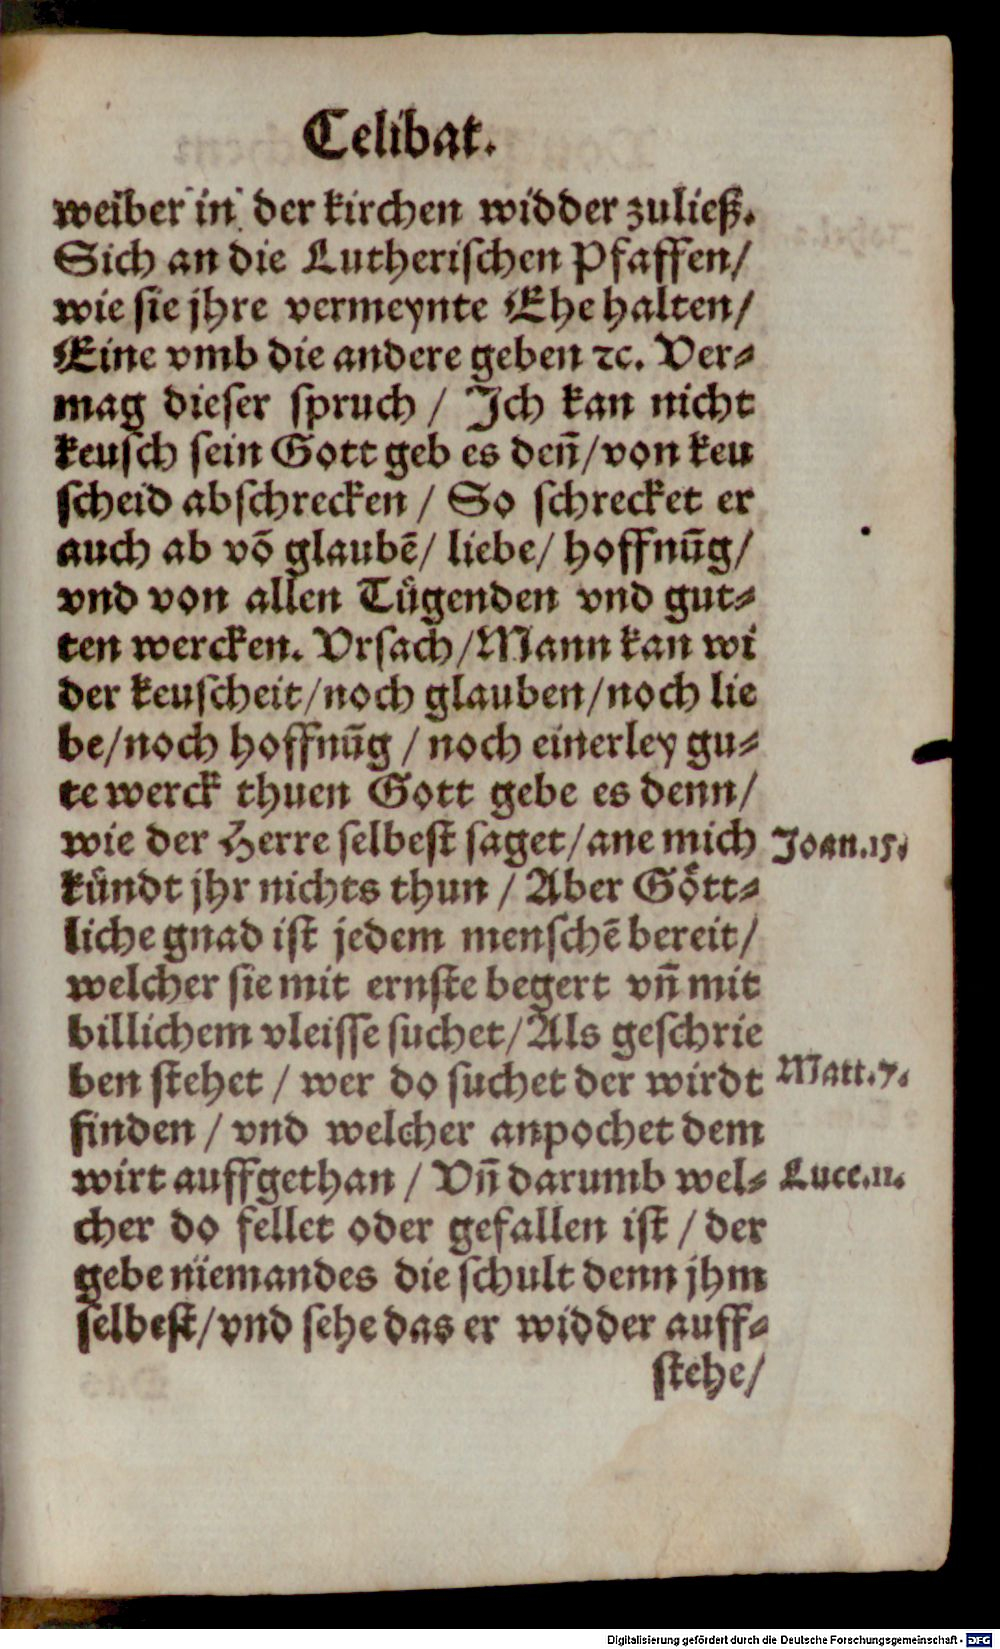 Celibat.
weiber in der kirchen widder zuließ.
Sich an die Lutherischen Pfaffen/
wie sie jhre vermeynte Ehe halten/
Eine vmb die andere geben ꝛc. Ver⸗
mag dieser spruch / Ich kan nicht
keusch sein Gott geb es deñ/von keu
scheid abschrecken / So schrecket er
auch ab võ glaubẽ/ liebe/ hoffnũg/
vnd von allen Tůgenden vnd gut⸗
ten wercken. Vrsach/Mann kan wi
der keuscheit/noch glauben/noch lie
be/noch hoffnũg / noch einerley gu⸗
te werck thuen Gott gebe es denn/
wie der Herre selbest saget/ane mich
Joan.15.
kůndt jhr nichts thun / Aber Gŏtt⸗
liche gnad ist jedem menschẽ bereit/
welcher sie mit ernste begert vñ mit
billichem vleisse suchet/Als geschrie
ben stehet / wer do suchet der wirdt
Matt.7.
finden / vnd welcher anpochet dem
wirt auffgethan / Vñ darumb wel⸗
Luce.11.
cher do fellet oder gefallen ist / der
gebe niemandes die schult denn jhm
selbest/vnd sehe das er widder auff⸗
stehe/
Digitalisierung gefördert durch die Deutsche Forschungsgemeinschaft - DFG